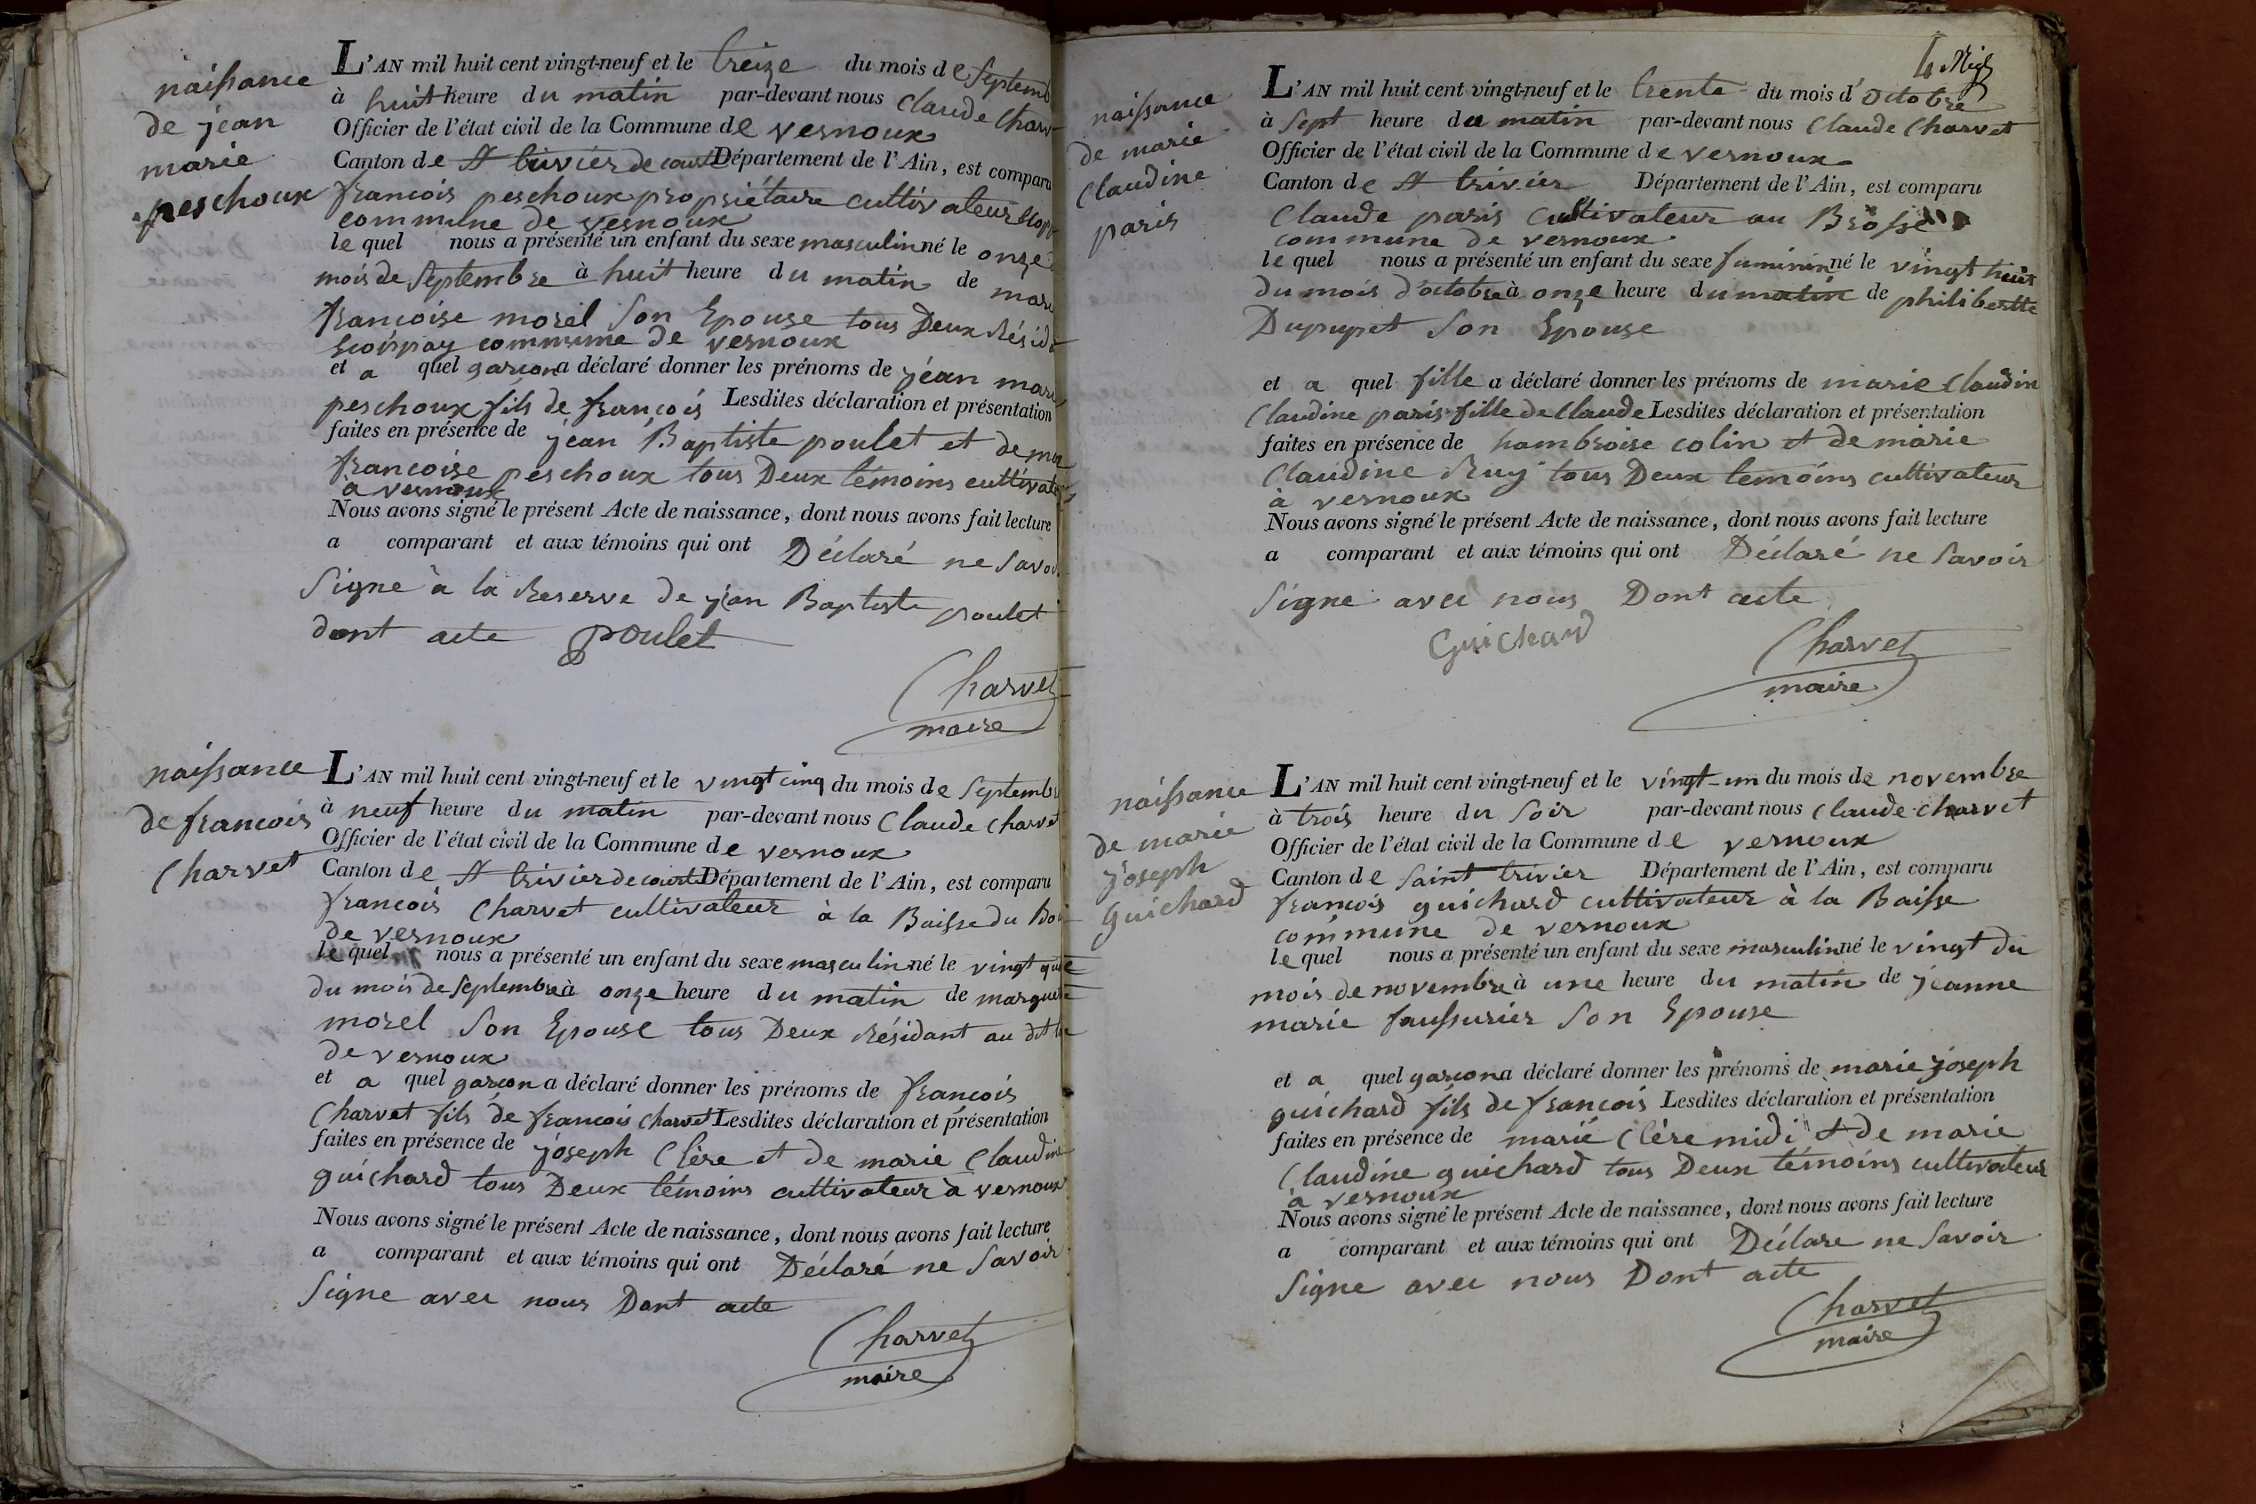 naissance
de jean
marie
peschoux
L'AN mil huit cent vingt-neuf et le treize du mois de septemb
à huit heure du matin par-devant nous Claude Charv
Officier de l'état civil de la Commune de vernoux
Canton de St trivier de court Département de l'Ain, est comparu
francois peschoux propriétaire cultivateur
commune de vernoux
le quel nous a présenté un enfant du sexe masculin né le onze
mois de septembre à huit heure du matin de mar
francoise morel son Epouse tous Deux Résid
commune de vernoux
et a quel garcon a déclaré donner les prénoms de jean mar
peschoux fils de francois Lesdites déclaration et présentation
faites en présence de jean Baptiste poulet et de mar
francoise peschoux tous Deux témoins cultivat
à vernoux
Nous avons signé le présent Acte de naissance, dont nous avons fait lecture
a comparant et aux témoins qui ont Déclaré ne savoi
signe à la Reserve de jean Baptiste poulet
dont acte poulet
Charvet
maire
naissance
de francois
Charvet
L'AN mil huit cent vingt-neuf et le vingt cinq du mois de septemb
à neuf heure du matin par-devant nous Claude Charvet
Officier de l'état civil de la Commune de vernoux
Canton de St trivier de court Département de l'Ain, est comparu
francois Charvet cultivateur à la Baisse du
de vernoux
le quel nous a présenté un enfant du sexe masculin né le vingt
du mois de septembre à onze heure du matin de
morel son Epouse tous Deux Résidant au dit
de vernoux
et a quel garcon a déclaré donner les prénoms de francois
Charvet fils de francois Charvet Lesdites déclaration et présentation
faites en présence de joseph Clère et de marie Claudine
guichard tous Deux témoins cultivateur à vernoux
Nous avons signé le présent Acte de naissance, dont nous avons fait lecture
a comparant et aux témoins qui ont Déclaré ne savoir
signe avec nous Dont acte
Charvet
maire
4
naissance
de marie
Claudine
paris
L'AN mil huit cent vingt-neuf et le trente du mois d'octobre
à sept heure du matin par-devant nous Claude Charvet
Officier de l'état civil de la Commune de vernoux
Canton de St trivier Département de l'Ain, est comparu
Claude paris cultivateur au
commune de vernoux
le quel nous a présenté un enfant du sexe feminin né le vingt huit
du mois d'octobre à onze heure du matin de philibertte
Dupupet son Epouse
et a quel fille a déclaré donner les prénoms de marie Claudin
Claudine paris fille de Claude Lesdites déclaration et présentation
faites en présence de hambroise colin et de marie
Claudine Ruy tous Deux temoins cultivateur
à vernoux
Nous avons signé le présent Acte de naissance, dont nous avons fait lecture
a comparant et aux témoins qui ont Déclaré ne savoir
signe avec nous Dont acte
Guichard
Charvet
maire
naissance
de marie
joseph
guichard
L'AN mil huit cent vingt-neuf et le vingt-un du mois de novembre
à trois heure du soir par-devant nous Claude Charvet
Officier de l'état civil de la Commune de vernoux
Canton de saint trivier Département de l'Ain, est comparu
francois guichard cultivateur à la Baisse
commune de vernoux
le quel nous a présenté un enfant du sexe masculin né le vingt du
mois de novembre à une heure du matin de jeanne
marie faussurier son Epouse
et a quel garcon a déclaré donner les prénoms de marie joseph
guichard fils de francois Lesdites déclaration et présentation
faites en présence de marie Clère midi et de marie
Claudine guichard tous Deux témoins cultivateur
à vernoux
Nous avons signé le présent Acte de naissance, dont nous avons fait lecture
a comparant et aux témoins qui ont Déclare ne savoir
signe avec nous Dont acte
Charvet
maire